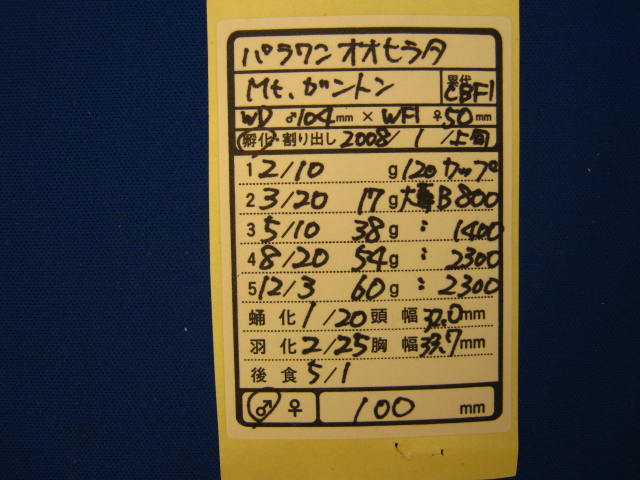 パラワンオオヒラタ
Mt. ガントン 累代 CBF1
WD ♂104mm × WF1 ♀50mm
孵化・割り出し 2008/1/上旬
1 2/10 g 120カップ
2 3/20 17g 大B800
3 5/10 38g : 1400
4 8/20 54g : 2300
5 12/3 60g : 2300
蛹化 1/20 頭幅 32.0mm
羽化 2/25 胸幅 33.7mm
後食 5/1
♂ ♀ 100 mm